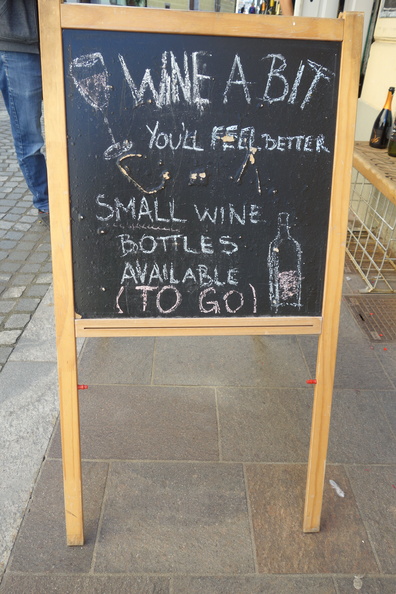 WINE A BIT
YOU'LL FEEL BETTER
SMALL WINE
BOTTLES
AVAILABLE
(TO GO)